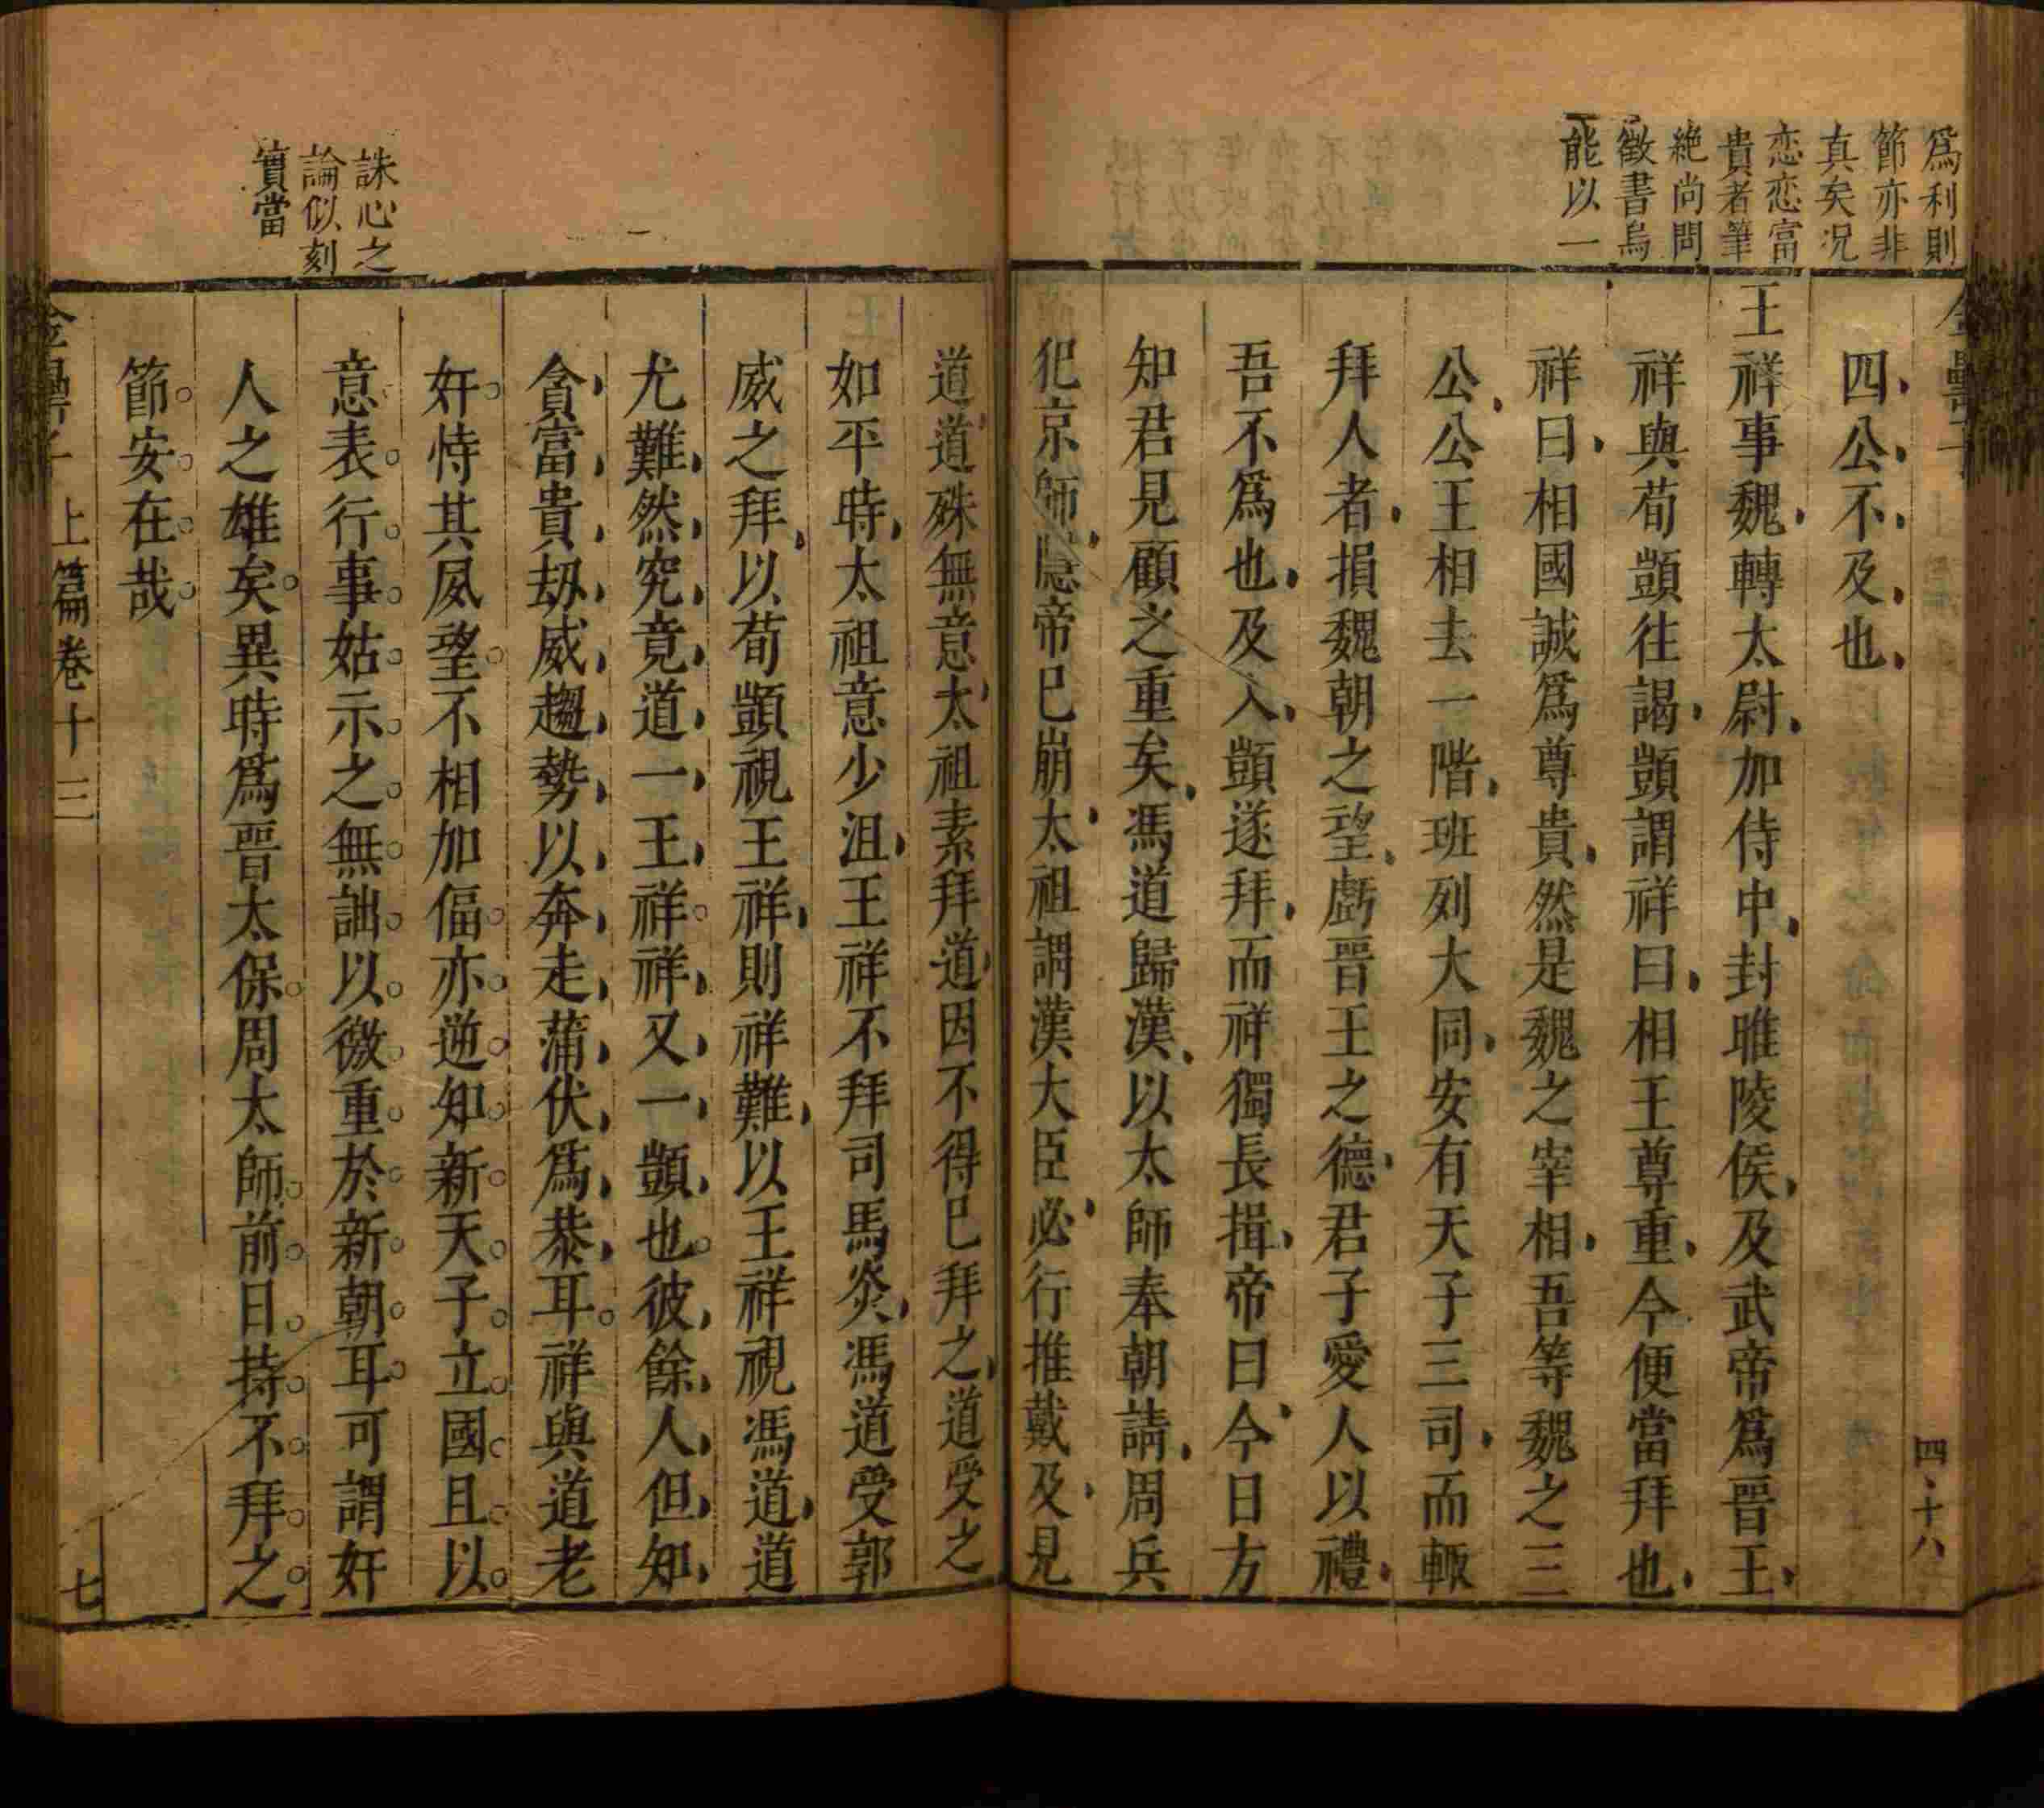 爲利則
節亦非
真矣况
恋恋富
貴者筆
絶尚問
徵書烏
能以一
四公不及也
王祥事魏轉太尉加侍中封睢陵侯及武帝爲晋王
祥與荀顗往謁顗謂祥曰相王尊重今便當拜也
祥曰相國誠爲尊貴然是魏之宰相吾等魏之三
公公王相去一階班列大同安有天子三司而輙
拜人者損魏朝之望虧晋王之德君子愛人以禮
吾不爲也及入顗遂拜而祥獨長揖帝曰今日方
知君見顧之重矣馮道歸漢以太師奉朝請周兵
犯京師隱帝已崩太祖謂漢大臣必行推戴及見
四十八
誅心之
論似刻
實當
道道殊無意太祖素拜道因不得已拜之道受之
如平時太祖意少沮王祥不拜司馬炎馮道受郭
威之拜以荀顗視王祥則祥難以王祥視馮道道
尤難然究竟道一王祥祥又一顗也彼餘人但知
貪富貴刼威趨勢以奔走蒲伏爲恭耳祥與道老
奸恃其夙望不相加偪亦逆知新天子立國且以
意表行事姑示之無詘以徼重於新朝耳可謂奸
人之雄矣異時爲晋太保周太師前日持不拜之
節安在哉
上篇卷十三
七